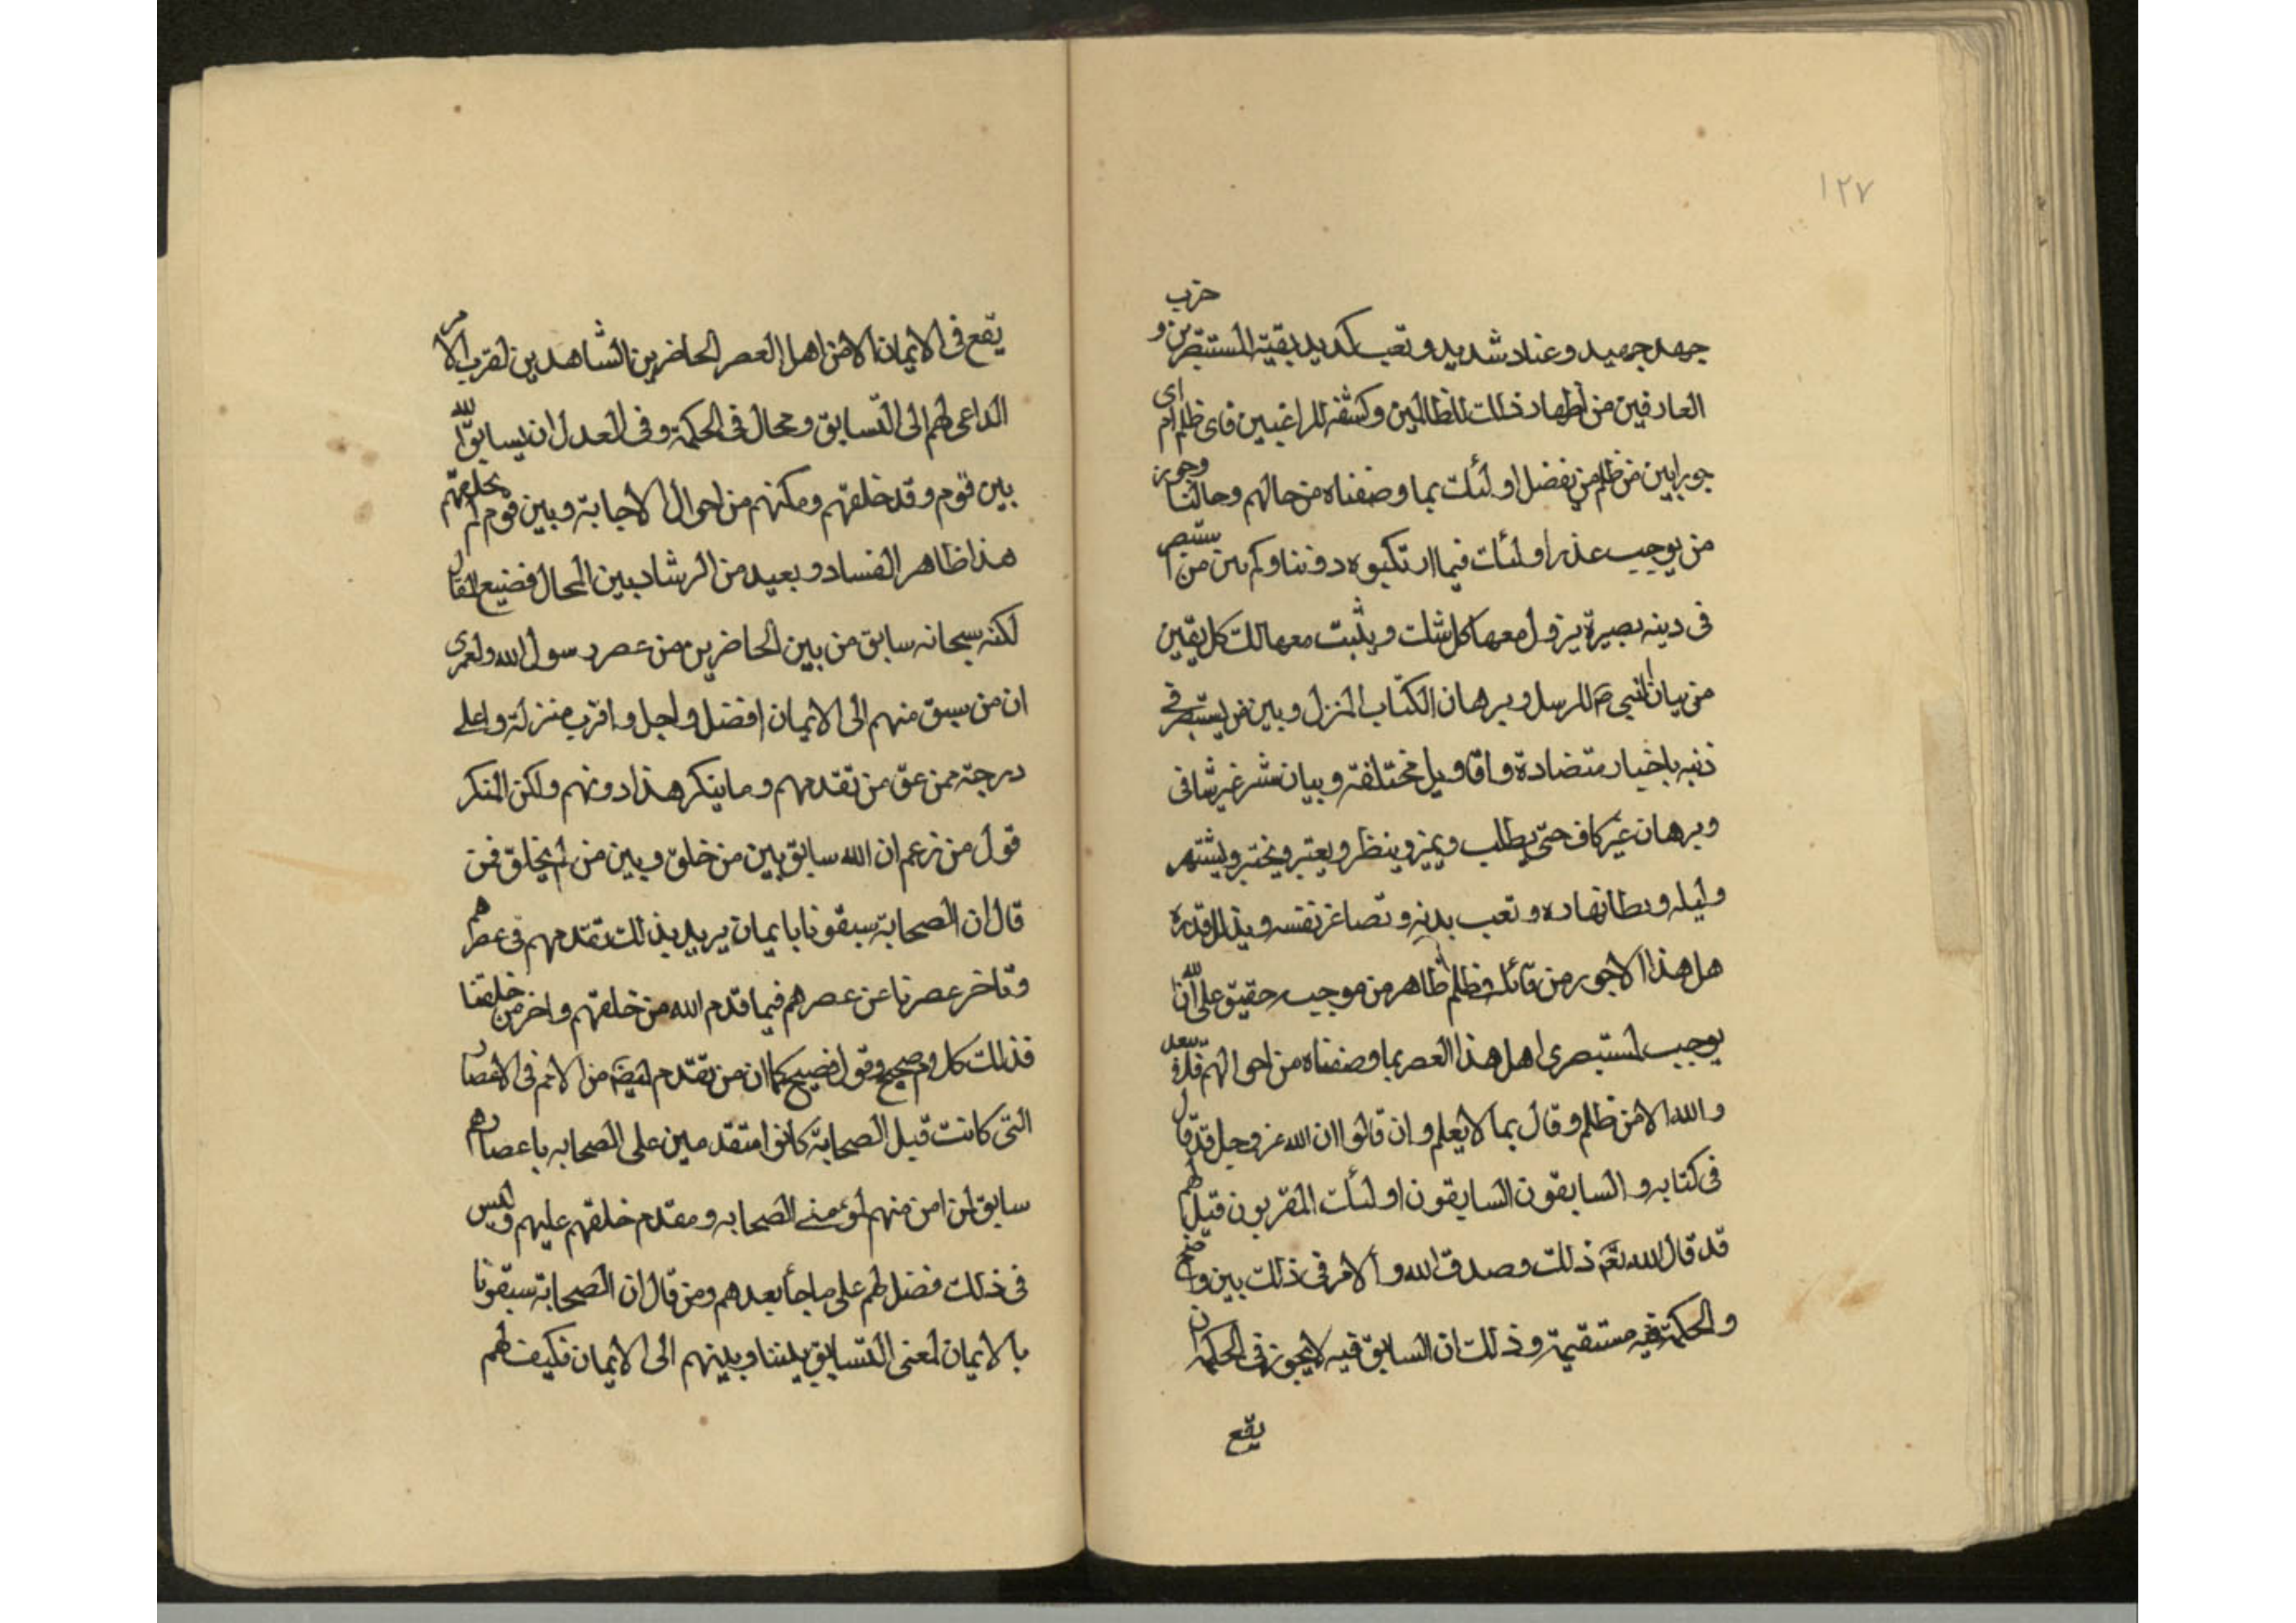 ١٢٧
جهد جهيد وعناد شديد وتعب كديد بقية المستبصرين و حزب
العارفين من اظهار ذلك للظالمين وكشفه للراغبين فاى ظلم ام اى
جور ابين من ظلم من يفضل اولئك بما وصفناه من حالهم وحالنا وجور
من يوجب عذر اولئك فيما ارتكبوه دوننا وكم بين من استبصر
فى دينه بصيرة يزول معها كل شك ويثبت معها لك كل يقين
من بيان النبى ص المرسل وبرهان الكتاب المنزل وبين من يستبصر فى
ذنبه باخبار متضادة واقاويل مختلفة وبيان نشر غير شافى
وبرهان غير كاف حتى يطلب ويميز وينظر ويعتبر ويختبر ويشتهر
وليله وبطانهاره وتعب بدنه وتصاغر نفسه ويذلل قدره
هل هذا الا جور من قائله وظلم ظاهر من موجبه حقيق على الله ان
يوجب لمستبصرى اهل هذا العصر بما وصفناه من احوالهم
والله الا من ظلم وقال بما لا يعلم وان قالوا ان الله عز وجل قد قال
فى كتابه والسابقون السابقون اولئك المقربون قيل لهم
قد قال الله تعالى ذلك وصدق الله والامر فى ذلك بين واضح
والحكمة فيه مستقيمة وذلك ان السابق فيه لا يجوز فى الحكمة ان
يقع
يقع فى الايمان الا من اهل العصر الحاضرين الشاهدين لقرب الامر
الداعى لهم الى التسابق ومحال فى الحكمة وفى العدل ان يسابق الله
بين قوم وقد خلقهم ومكنهم من احوال الاجابة وبين قوم لم يخلقهم
هذا ظاهر الفساد وبعيد من الرشاد بين المحال فضيع المقال
لكنه سبحانه سابق من بين الحاضرين من عصر رسول الله ولعمرى
ان من سبق منهم الى الايمان افضل واجل واقرب منزلة واعلى
درجة ممن عق من تقدمهم وما ينكر هذا دونهم ولكن المنكر
قول من زعم ان الله سابق بين من خلق وبين من لم يخلق فمن
قال ان الصحابة سبقونا بايمان يريد بذلك تقدمهم فى عصرهم
وتاخر عصرنا عن عصرهم فيما قدم الله من خلقهم واخر من خلقنا
فذلك كلام صحيح وقول فصيح كما ان من تقدم ايضا من الامم فى الاعصار
التى كانت قبل الصحابة كانوا متقدمين على الصحابه باعصارهم
سابق لمن امن منهم لمؤمنى الصحابه ومقدم خلقهم عليهم وليس
فى ذلك فضل لهم على ما جأ بعدهم ومن قال ان الصحابة سبقونا
بالايمان لمعنى التسابق بيننا وبينهم الى الايمان فكيف لهم